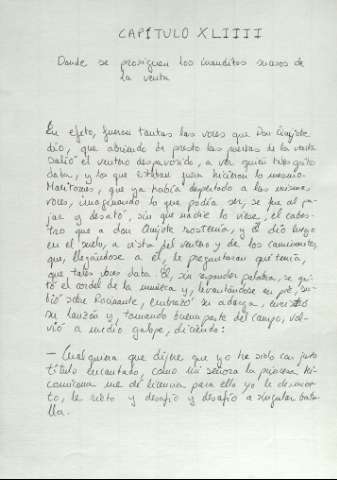 CAPÍTULO XLIIII
Donde se prosiguen los inauditos sucesos de
la venta
En efeto, fueron tantas las voces que Don Quijote
dio, que abriendo de presto las puertas de la venta
salió el ventero despavorido, a ver quien tales gritos
daba, y los que estaban fuera hicieron lo mesmo.
Maritornes, que ya había despertado a las mismas
voces, imaginando lo que podía ser, se fue al pa-
jar y desató, sin que nadie lo viese, el cabes-
tro que a don Quijote sostenía, y él dio luego
en el suelo, a vista del ventero y de los caminantes,
que, llegándose a él, le preguntaron qué tenía,
que tales voces daba. Él, sin responder palabra, se qui-
tó el cordel de la muñeca y, levantándose en pie, su-
bió sobre Rocinante, embrazó su adarga, enristró
su lanzón y, tomando buena parte del campo, vol-
vió a medio galope, diciendo:
- Cualquiera que dijere que yo he sido con justo
título encantado, como mi señora la princesa Mi-
comicona me dé licencia para ello yo le desmien-
to, le rieto y desafío y desafío a singular bata-
lla.